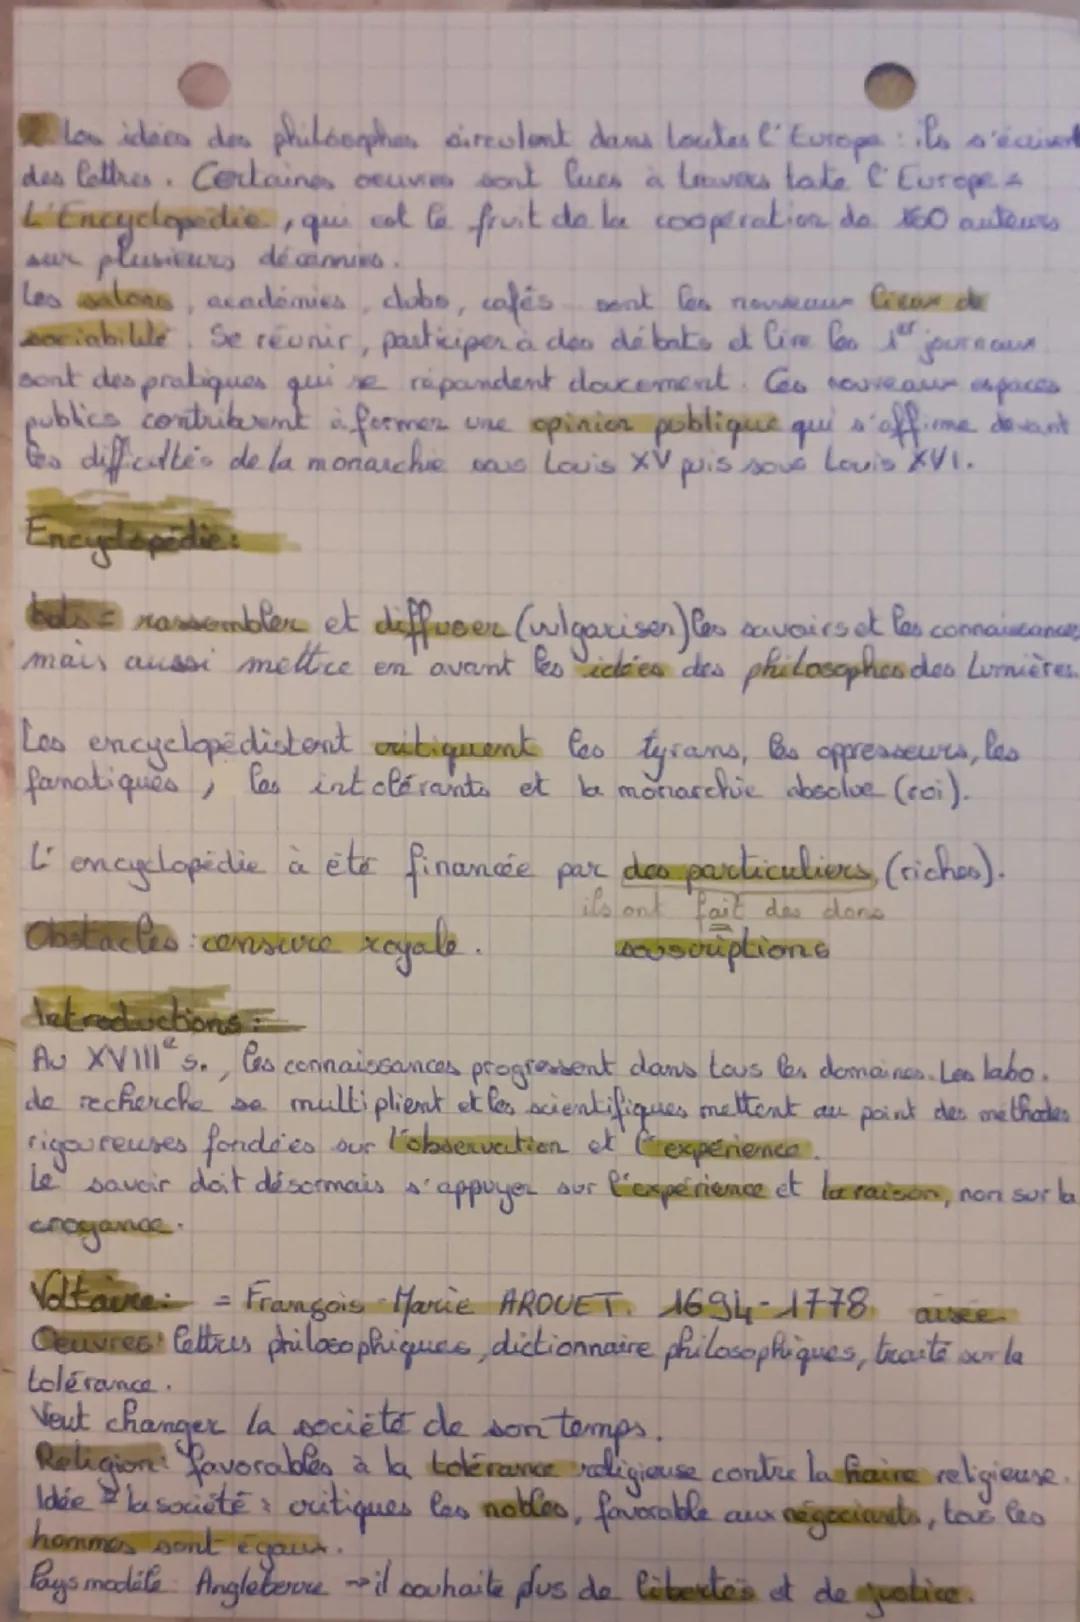 Les idées des philosophes circulent dans toutes l'Europe : ils s'écrivent
des lettres. Certaines oeuvres sont lues à travers toute l'Europe :
L'Encyclopédie, qui est le fruit de la coopération de 160 auteurs
sur plusieurs décennies.
Les salons, académies, clubs, cafés sont les nouveaux lieux de
sociabilité. Se réunir, participer à des débats et lire les 1er journaux
sont des pratiques qui se répandent doucement. Ces nouveaux espaces
publics contribuent à former une opinion publique qui s'affirme devant
les difficultés de la monarchie sous Louis XV puis sous Louis XVI.
Encyclopédie :
buts = rassembler et diffuser (vulgariser) les savoirs et les connaissances
mais aussi mettre en avant les idées des philosophes des Lumières.
Les encyclopédistent critiquent les tyrans, les oppresseurs, les
fanatiques, les intolérants et la monarchie absolue (roi).
L'encyclopédie à été financée par des particuliers, (riches).
ils ont fait des dons
Obstacles : censure royale. souscriptions
Introductions :
Au XVIIIe s., les connaissances progressent dans tous les domaines. Les labo.
de recherche se multiplient et les scientifiques mettent au point des méthodes
rigoureuses fondées sur l'observation et l'expérience.
Le savoir doit désormais s'appuyer sur l'expérience et la raison, non sur la
croyance.
Voltaire : = François-Marie AROUET. 1694-1778 aisée
Oeuvres : lettres philosophiques, dictionnaire philosophiques, traité sur la
tolérance.
Veut changer la société de son temps.
Religion : favorables à la tolérance religieuse contre la haine religieuse.
Idée la société : critiques les nobles, favorable aux négociants, tous les
hommes sont égaux.
Pays modèle Angleterre → il souhaite plus de libertés et de justice.